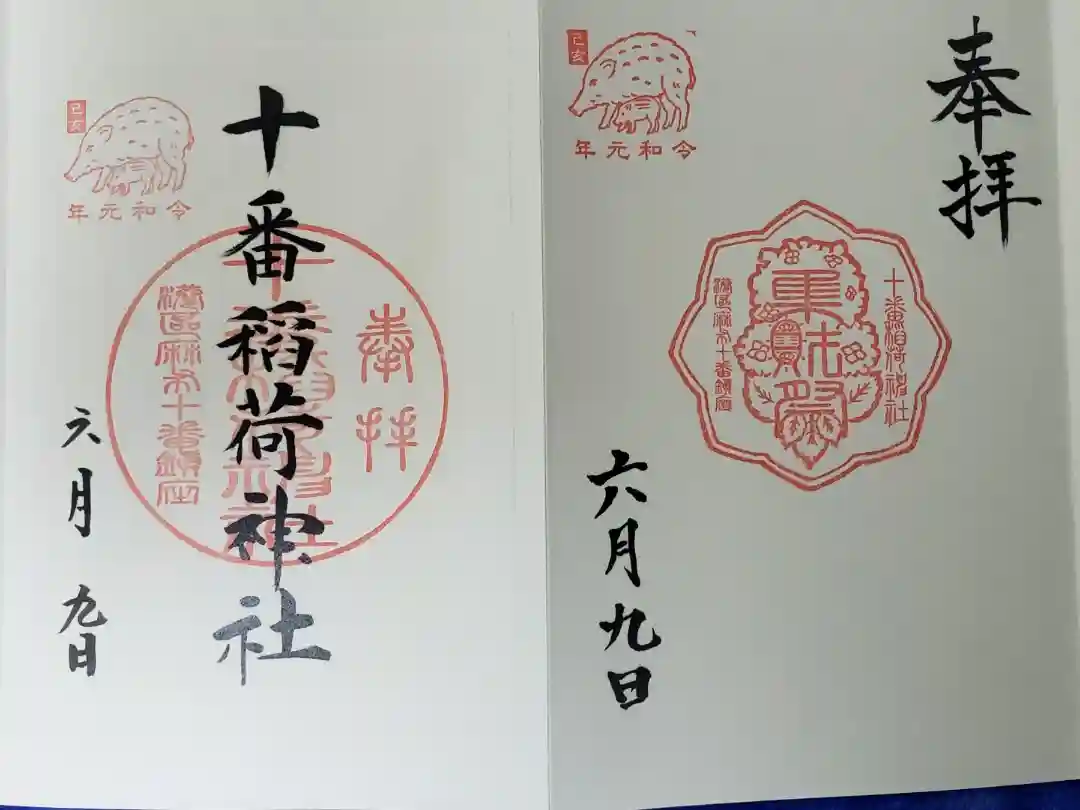 奉拝
十番稲荷神社
港区麻布十番鎮座
己亥
令和元年
六月九日
奉拝
十番稲荷神社
十番稲荷神社
港区麻布十番鎮座
己亥
令和元年
六月九日